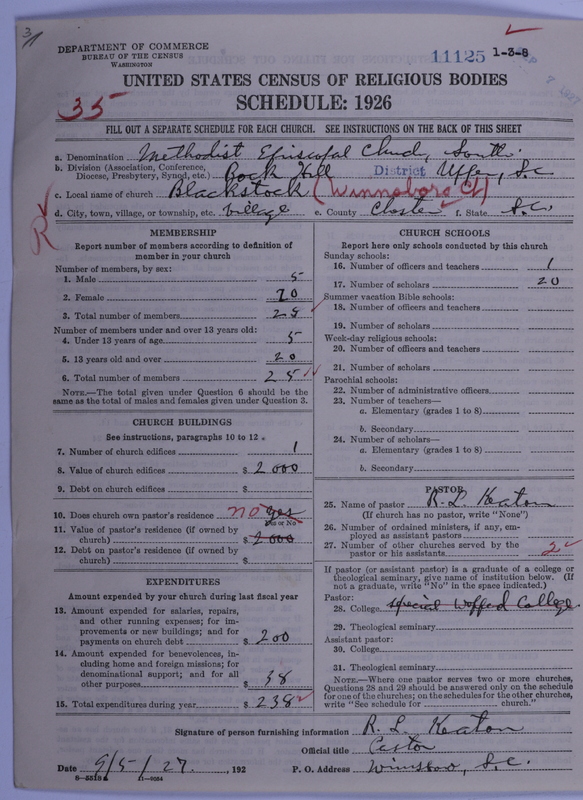 3/
DEPARTMENT OF COMMERCE
BUREAU OF THE CENSUS
WASHINGTON
11125 1-3-8
UNITED STATES CENSUS OF RELIGIOUS BODIES
35
SCHEDULE: 1926
FILL OUT A SEPARATE SCHEDULE FOR EACH CHURCH. SEE INSTRUCTIONS ON THE BACK OF THIS SHEET
a. Denomination Methodist Episcopal Church, South.
b. Division (Association, Conference, Diocese, Presbytery, Synod, etc.) Rock Hill District Upper, S.C
c. Local name of church Blackstock (Winnsboro Ch)
d. City, town, village, or township, etc. Village e. County Chester f. State S.C.
R
MEMBERSHIP
Report number of members according to definition of
member in your church
Number of members, by sex:
1. Male 5
2. Female 20
3. Total number of members 25
Number of members under and over 13 years old:
4. Under 13 years of age 5
5. 13 years old and over 20
6. Total number of members 25
NOTE.—The total given under Question 6 should be
same as the total of males and females given under Question 3.
CHURCH BUILDINGS
See instructions, paragraphs 10 to 12
7. Number of church edifices 1
8. Value of church edifices $ 2000
9. Debt on church edifices $
10. Does church own pastor's residence no yes
Yes or No
11. Value of pastor's residence (if owned by
church) $ 2000
12. Debt on pastor's residence (if owned by
church) $
EXPENDITURES
Amount expended by your church during last fiscal year
13. Amount expended for salaries, repairs,
and other running expenses; for im-
provements or new buildings; and for
payments on church debt $ 200
14. Amount expended for benevolences, in-
cluding home and foreign missions; for
denominational support; and for all
other purposes $ 38
15. Total expenditures during year $ 238
CHURCH SCHOOLS
Report here only schools conducted by this church
Sunday schools:
16. Number of officers and teachers 1
17. Number of scholars 20
Summer vacation Bible schools:
18. Number of officers and teachers
19. Number of scholars
Week-day religious schools:
20. Number of officers and teachers
21. Number of scholars
Parochial schools:
22. Number of administrative officers
23. Number of teachers—
a. Elementary (grades 1 to 8)
b. Secondary
24. Number of scholars—
a. Elementary (grades 1 to 8)
b. Secondary
PASTOR
25. Name of pastor R. L. Keaton
(If church has no pastor, write "None")
26. Number of ordained ministers, if any, em-
ployed as assistant pastors
27. Number of other churches served by the
pastor or his assistants 2
If pastor (or assistant pastor) is a graduate of a college or
theological seminary, give name of institution below. (If
not a graduate, write "No" in the space indicated.)
Pastor:
28. College Special Wofford College
29. Theological seminary
Assistant pastor:
30. College
31. Theological seminary
NOTE.—Where one pastor serves two or more churches,
Questions 28 and 29 should be answered only on the schedule
for one of the churches; on the schedules for the other churches,
write "See schedule for church."
Signature of person furnishing information R. L. Keaton
Official title Pastor
Date 9/5/27, 192 P. O. Address Winnsboro, S.C.